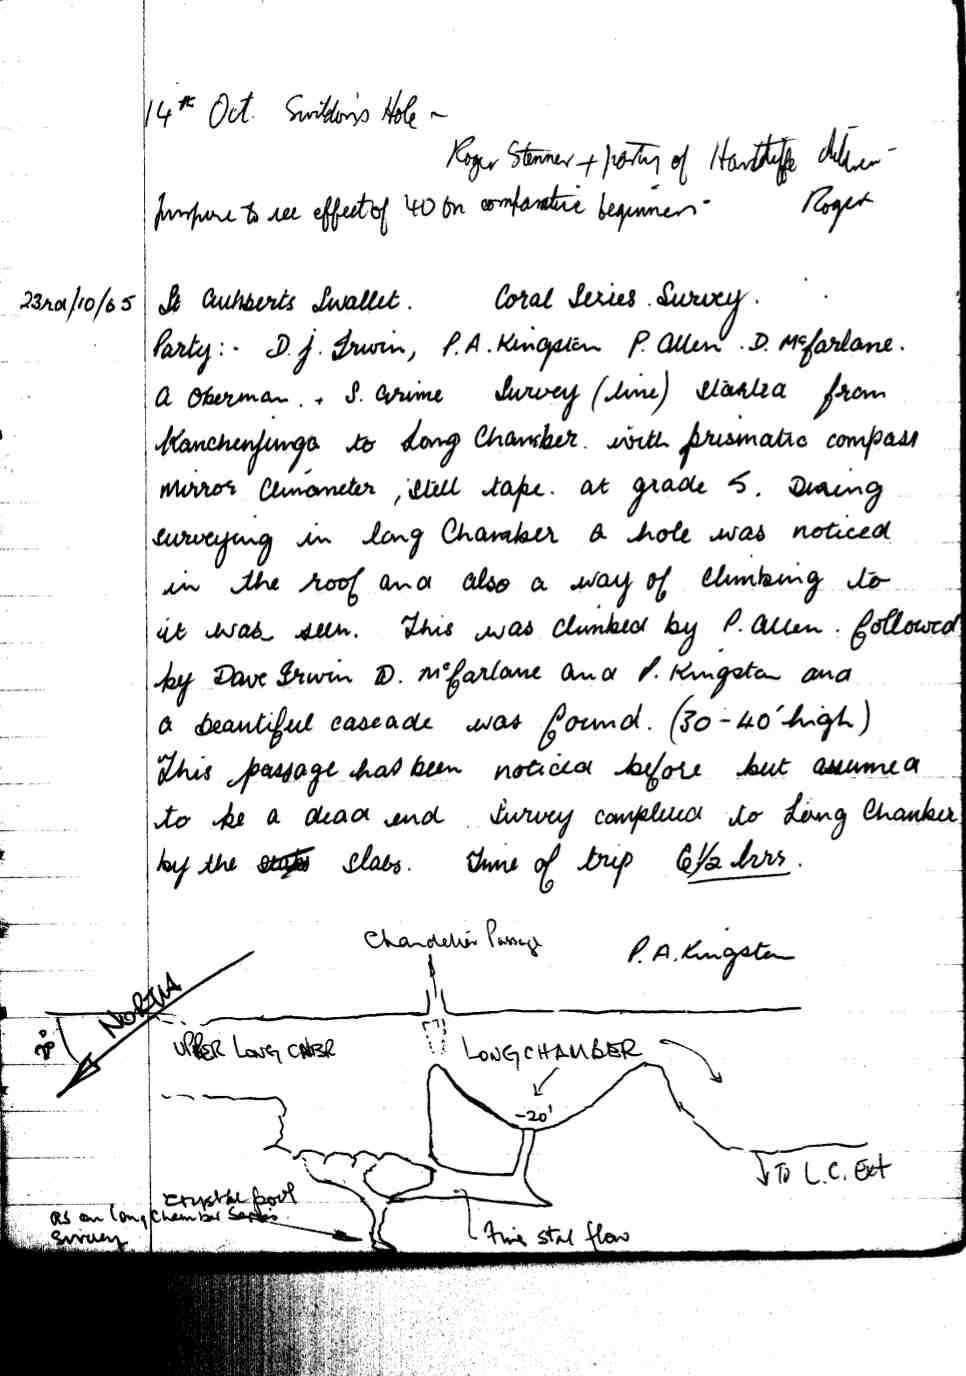 14th Oct. Swildon's Hole ~
Roger Stenner + party of Hartcliffe children -
purpose to see effect of 40 on comparative beginners - Roger
23rd/10/65 St Cuthberts Swallet. Coral Series Survey.
Party:- D.J. Irwin, P.A. Kingston P. Allen. D. McFarlane.
A Oberman. + S. Grime Survey (line) started from
Kanchenjunga to Long Chamber. with prismatic compass
mirror Clinometer, steel tape. at grade 5. During
surveying in long Chamber a hole was noticed
in the roof and also a way of climbing to
it was seen. This was climbed by P. Allen. followed
by Dave Irwin D. McFarlane and P. Kingston and
a beautiful cascade was found. (30-40' high)
This passage has been noticed before but assumed
to be a dead end. Survey completed to Long Chamber
by the slabs. Time of trip 6 1/2 hrs.
Chandelier Passage
P.A. Kingston
NORTH
UPPER LONG CHBR
LONG CHAMBER
-20'
To L.C. Ext
crystal pool
as on long Chamber Series
Survey
Fine stal flow